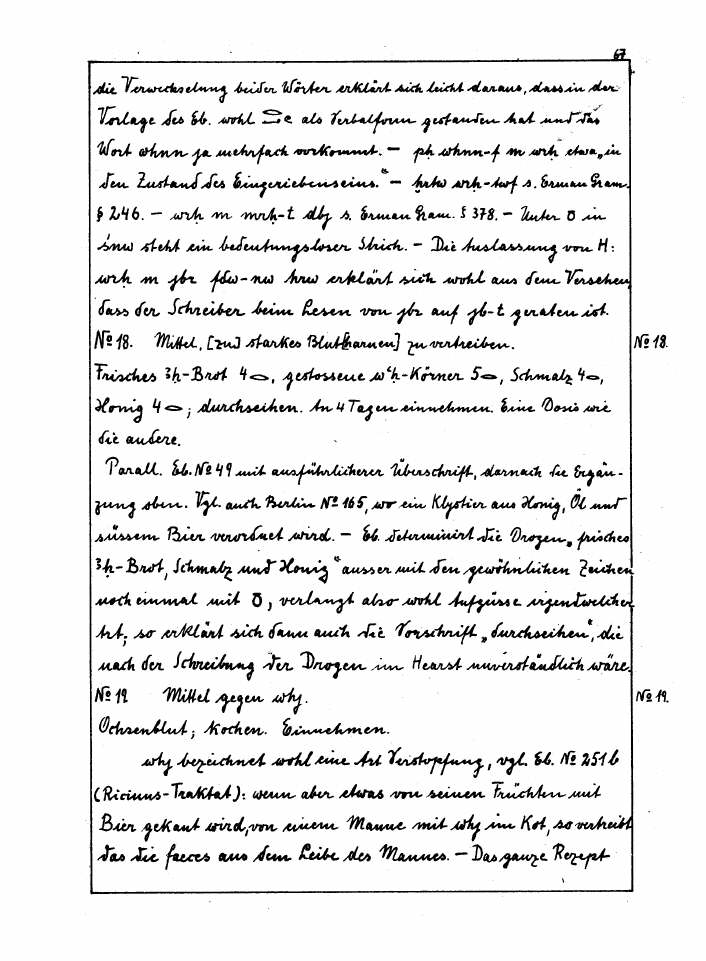 67
die Verwechselung beider Wörter erklärt sich leicht daraus, dass in der
Vorlage des Eb. wohl als Verbalform gestanden hat und das
Wort whnn ja mehrfach vorkommt. — pḥ whnn-f m wrḥ etwa „in
den Zustand des Eingeriebenseins." — ḥrtw wrḥ-twf s. Erman Gram.
§ 246. — wrḥ m mrḥ-t dbj s. Erman Gram. § 378. — Unter ꝹꝹ in
śnw steht ein bedeutungsloser Strich. — Die Auslassung von H:
wrḥ m jbr fdw-nw hrw erklärt sich wohl aus dem Versehen,
dass der Schreiber beim Lesen von jbr auf jb-t geraten ist.
No 18. Mittel, [zu] starkes Blut[harnen] zu vertreiben. No 18.
Frisches ꜣḥ-Brot 4, gestossene wꜥḥ-Körner 5, Schmalz 4,
Honig 4; durchseihen. An 4 Tagen einnehmen. Eine Dosis wie
die andere.
Parall. Eb. No 49 mit ausführlicherer Überschrift, darnach die Ergän-
zung oben. Vgl. auch Berlin No 165, wo ein Klystier aus Honig, Öl und
süssem Bier verordnet wird. — Eb. determinirt die Drogen „frisches
ꜣḥ-Brot, Schmalz und Honig" ausser mit den gewöhnlichen Zeichen
noch einmal mit, verlangt also wohl Aufgüsse irgendwelcher
Art; so erklärt sich dann auch die Vorschrift „durchseihen", die
nach der Schreibung der Drogen im Hearst unverständlich wäre.
No 19 Mittel gegen whj. No 19.
Ochsenblut; kochen. Einnehmen.
whj bezeichnet wohl eine Art Verstopfung, vgl. Eb. No 251 b
(Ricinus-Traktat): wenn aber etwas von seinen Früchten mit
Bier gekaut wird, von einem Manne mit whj im Kot, so vertreibt
das die faeces aus dem Leibe des Mannes. — Das ganze Rezept